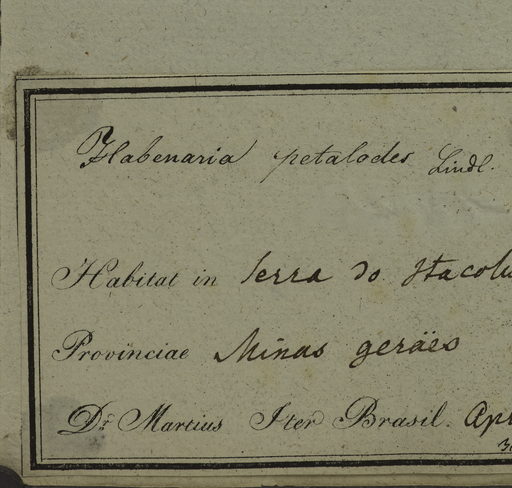 Habenaria petalodes Lindl.
Habitat in serra do Itacolu
Provinciae Minas geräes
Dr. Martius Iter Brasil. Apr